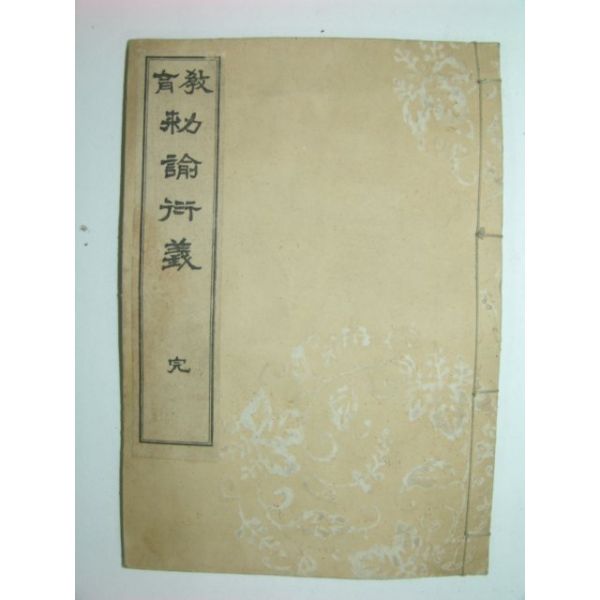 教育
勅諭衍義
完